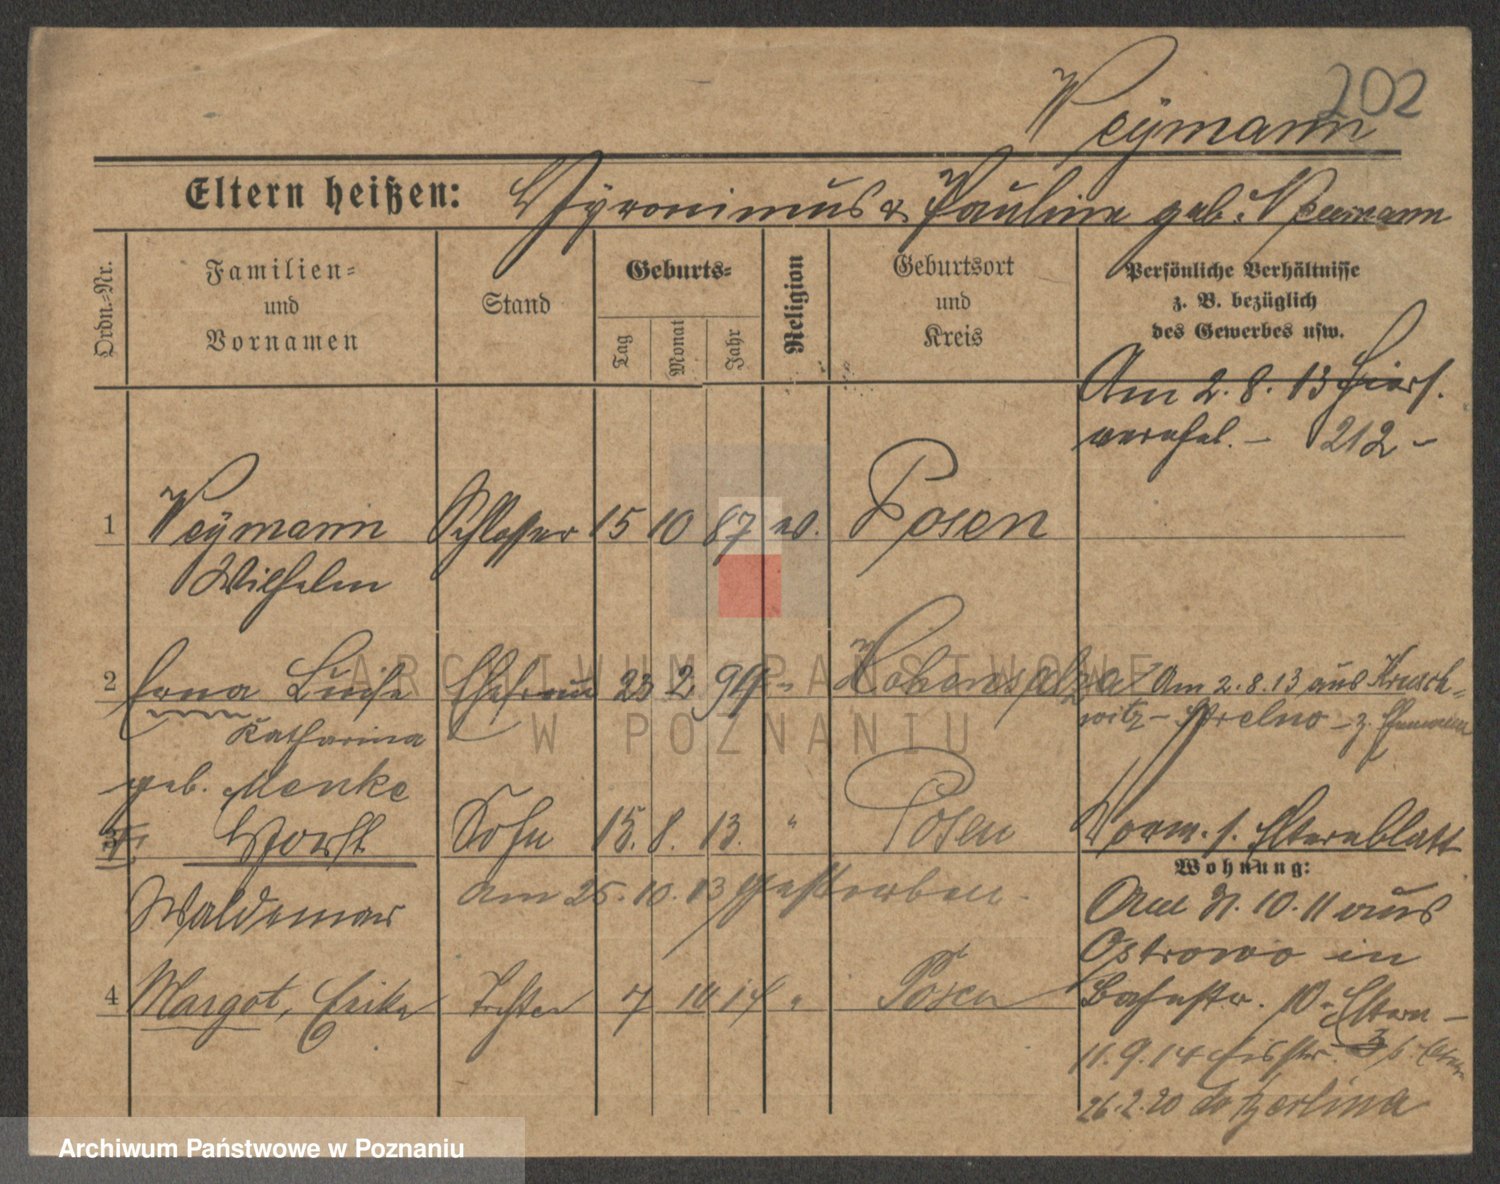 202
Weÿmann
Eltern heißen: Hÿronimus & Pauline geb. Neumann
Ordn.=Nr.
Familien=
und
Vornamen
Stand
Geburts=
Tag
Monat
Jahr
Religion
Geburtsort
und
Kreis
Persönliche Verhältnisse
z. B. bezüglich
des Gewerbes usw.
Am 2.8.13 hiers.
verehel. – 212 –
1 Weÿmann Schlosser 15 10 87 ev. Posen
Wilhelm
2 Erna Luise Ehefrau 23 2 94 " Hohensalza
Katharina
geb. Menke
Am 2.8.13 aus Krusch=
witz – Strelno – z. Ehemann
3 Horst Sohn 15. 8. 13. " Posen
Waldemar
am 25.10.13 gestorben.
Vorm. s. Elternblatt
Wohnung:
4 Margot, Erika Tochter 7 10 14 " Posen
Am 31.10.11 aus
Ostrowo in
Bahnstr. 10 Eltern –
11.9.14
26.2.20 do Berlina
Archiwum Państwowe w Poznaniu
ARCHIWUM PAŃSTWOWE
W POZNANIU